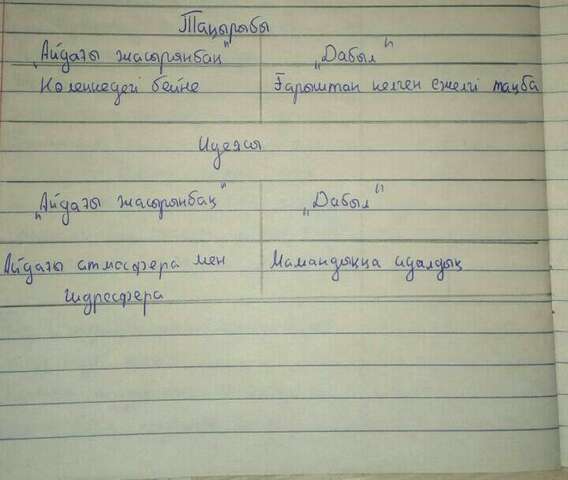 Тақырыбы
„Айдағы жасырынбақ" „Дабыл"
Көлеңкедегі бейне Ғарыштан келген ежелгі таңба
Идеясы
„Айдағы жасырынбақ" „Дабыл"
Айдағы атмосфера мен Мамандыққа адалдық
гидросфера